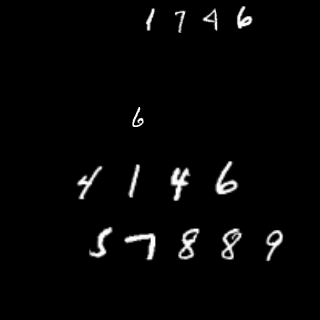 1 7 4 6
6
4 1 4 6
5 7 8 8 9